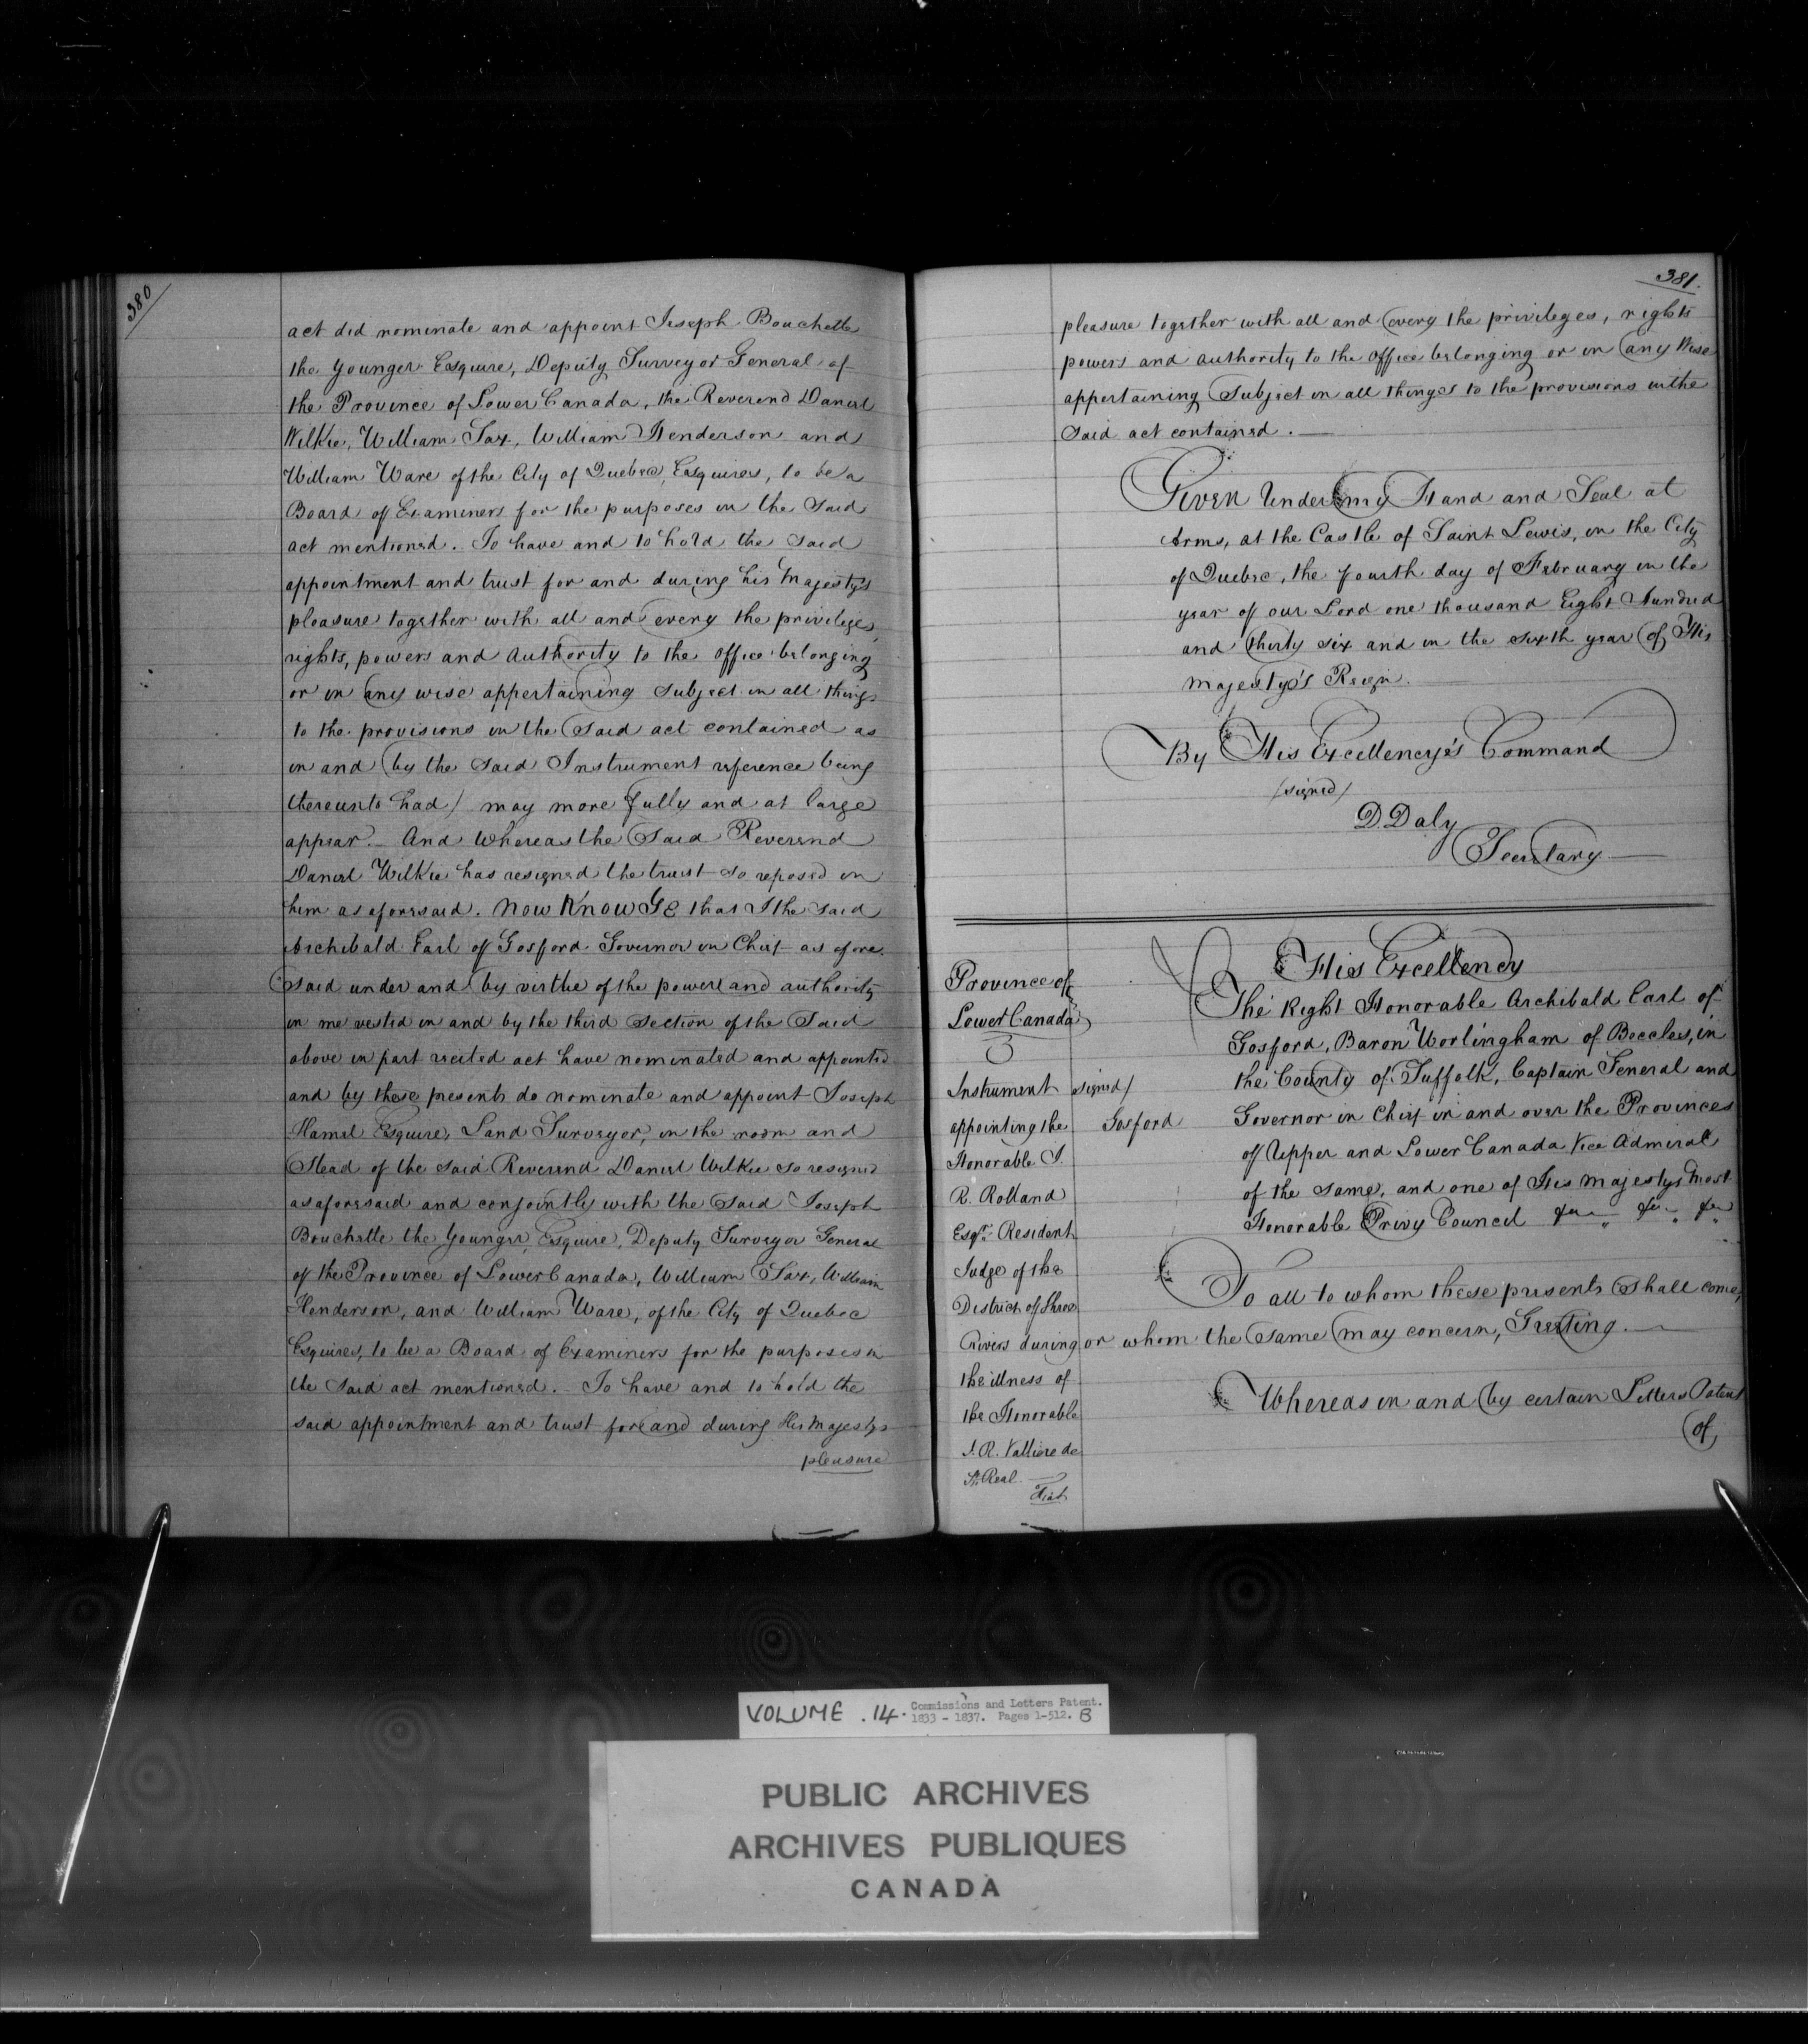 380
act did nominate and appoint Joseph Bouchette
the Younger Esquire, Deputy Surveyor General of
the Province of Lower Canada, the Reverend Daniel
Wilkie, William Sax, William Henderson and
William Ware of the City of Quebec, Esquires, to be a
Board of Examiners for the purposes in the said
act mentioned. To have and to hold the said
appointment and trust for and during his Majesty's
pleasure together with all and every the privileges,
rights, powers and authority to the office belonging
or in any wise appertaining subject in all things
to the provisions in the said act contained as
in and by the said Instrument reference being
thereunto had / may more fully and at large
appear. And Whereas the said Reverend
Daniel Wilkie has resigned the trust so reposed in
him as aforesaid. Now Know Ye that I the said
Archibald Earl of Gosford Governor in Chief as afore
said under and by virtue of the power and authority
in me vested in and by the third section of the said
above in part recited act have nominated and appointed
and by these presents do nominate and appoint Joseph
Hamel Esquire, Land Surveyor, in the room and
Stead of the said Reverend Daniel Wilkie so resigned
as aforesaid and conjointly with the said Joseph
Bouchette the Younger, Esquire, Deputy Surveyor General
of the Province of Lower Canada, William Sax, William
Henderson, and William Ware, of the City of Quebec
Esquires, to be a Board of Examiners for the purposes in
the said act mentioned. To have and to hold the
said appointment and trust for and during His Majestys
pleasure
381.
pleasure together with all and every the privileges, rights
powers and authority to the office belonging or in any Wise
appertaining Subject in all things to the provisions in the
said act contained.
Given Under my Hand and Seal at
Arms, at the Castle of Saint Lewis, in the City
of Quebec, the fourth day of February in the
year of our Lord one thousand Eight Hundred
and thirty six and in the sixth year of His
Majesty's Reign.
By His Excellency's Command
/signed/
D Daly
Secretary
Province of
Lower Canada
Instrument
appointing the
Honorable J.
R. Rolland
Esqr. Resident
Judge of the
District of Three
Rivers during
the illness of
the Honorable
J. R. Valliere de
St. Real
Fiat
signed/
Gosford
His Excellency
The Right Honorable Archibald Earl of
Gosford, Baron Worlingham of Beccles, in
the County of Suffolk, Captain General and
Governor in Chief in and over the Provinces
of Upper and Lower Canada Vice Admiral
of the same, and one of His Majestys Most
Honorable Privy Council &c &c &c
To all to whom these presents Shall come,
or whom the same may concern, Greeting.
Whereas in and by certain Letters Patent
of
VOLUME .14. Commissions and Letters Patent.
1833 - 1837. Pages 1-512. B
PUBLIC ARCHIVES
ARCHIVES PUBLIQUES
CANADA